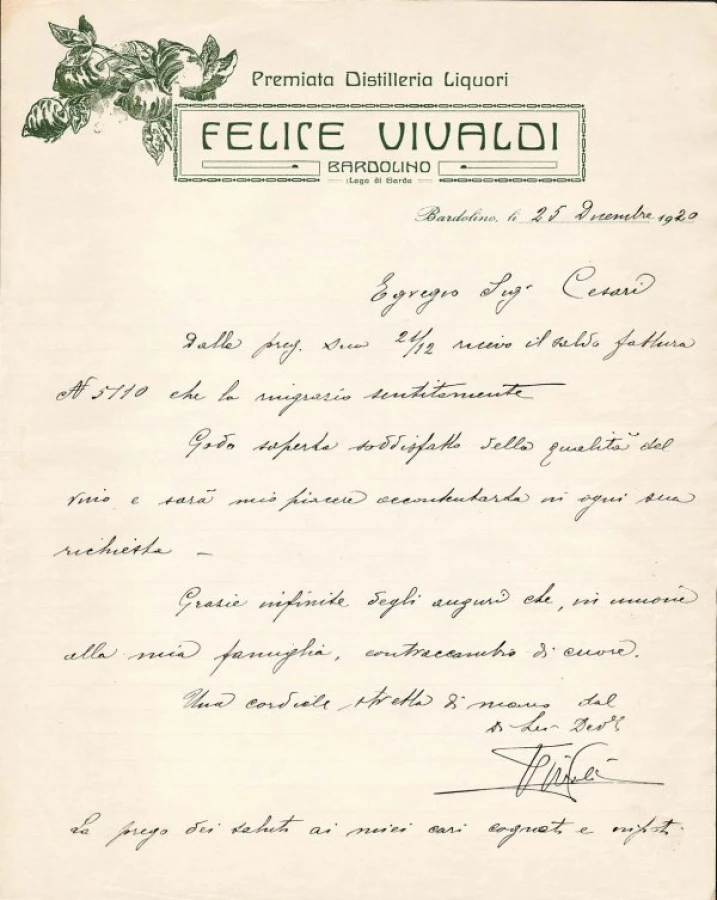 Premiata Distilleria Liquori
FELICE VIVALDI
BARDOLINO
(Lago di Garda
Bardolino, li 25 Dicembre 1920
Egregio Sigr Cesari
Dalla preg. sua 21/12 ricevo il saldo fattura
N 5110 che la ringrazio sentitamente
Godo saperla soddisfatto della qualità del
vino e sarà mio piacere accontentarla in ogni sua
richiesta –
Grazie infinite degli auguri che, in unione
alla mia famiglia, contraccambio di cuore.
Una cordiale stretta di mano dal
di Lei Devo
La prego dei saluti ai miei cari cognati e nipoti.